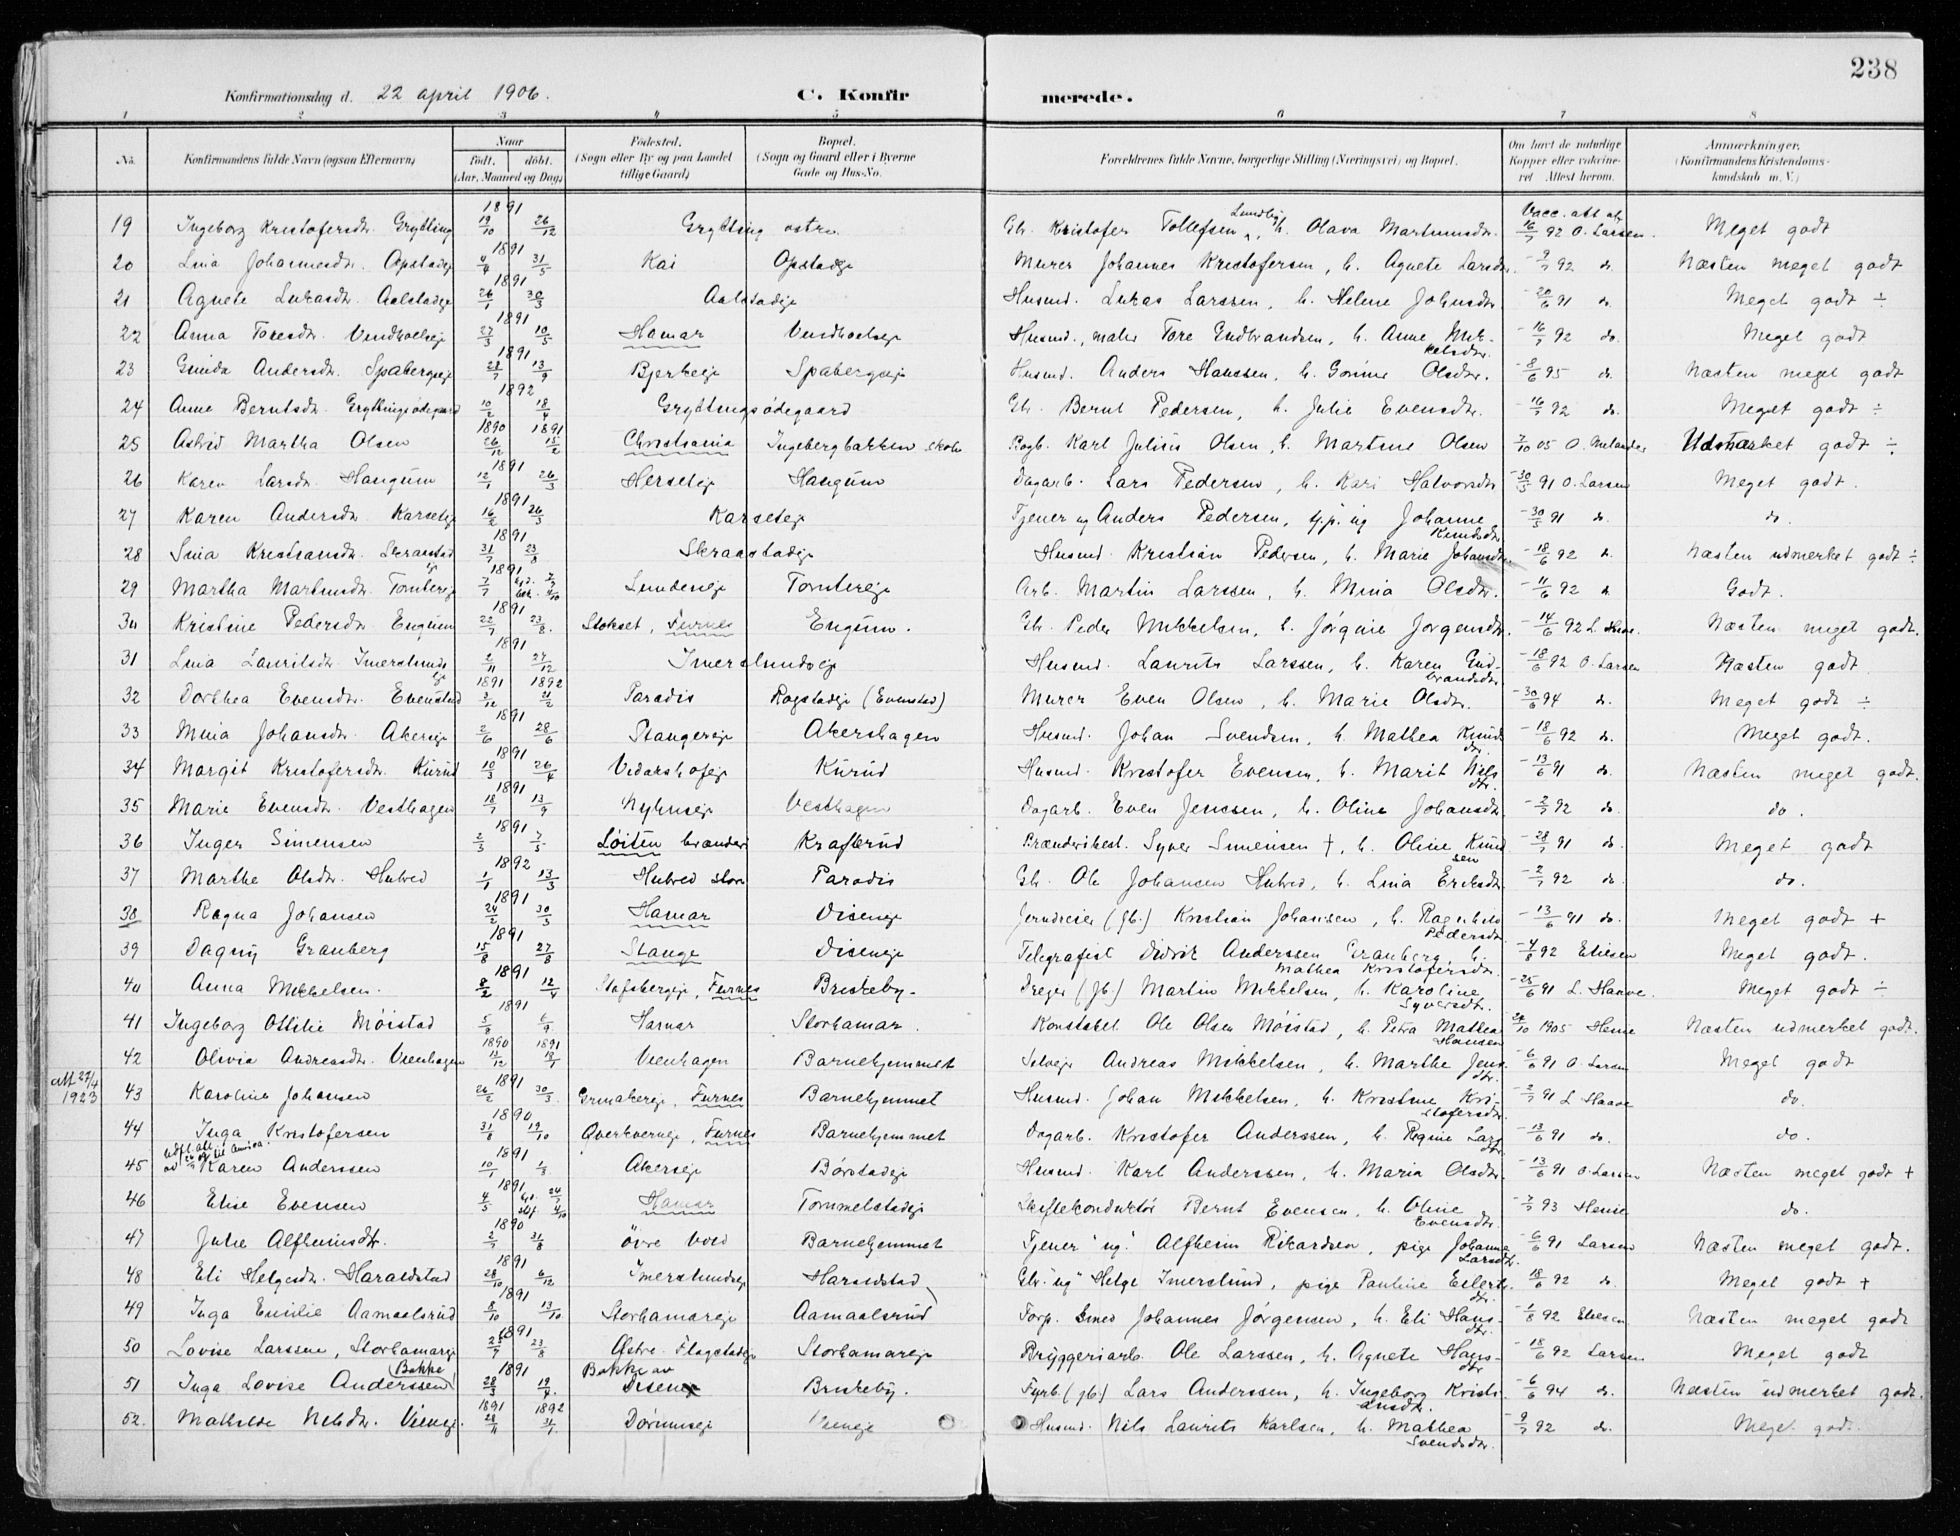 238
Konfirmationsdag d. 22 april 1906. C. Konfirmerede.
1 2 3 4 5 6 7 8
No. Konfirmandens fulde Navn (ogsaa Efternavn) Naar født. døbt. (Aar, Maaned og Dag) Fødested. (Sogn eller By og paa Landet tillige Gaard) Bopæl. (Sogn og Gaard eller i Byerne Gade og Hus-No. Forældrenes fulde Navne, borgerlige Stilling (Næringsvei) og Bopæl. Om havt de naturlige Kopper eller vaccineret Attest herom. Anmærkninger. (Konfirmandens Kristendomskundskab m. V.)
19 Ingeborg Kristofersdtr. Grytting 1891 19/10 26/12 Grytting østre Gb. Kristofer Tollefsen Lundby, h. Olava Martinusdtr. Vacc. att. af 16/7 92 O. Larsen. Meget godt
20 Lina Johannesdtr. Opstadeje 1891 4/4 31/5 Kai Opstadeje Murer Johannes Kristofersen, h. Agnete Larsdtr. 2/7 92 do. Næsten meget godt
21 Agnete Lukasdtr. Aalstadeje 1891 26/1 30/3 Aalstadeje Husmd. Lukas Larssen, h. Helene Johnsdtr. 20/6 91 do. Meget godt ÷
22 Anna Toresdtr. Vendkvelseje 1891 27/3 10/5 Hamar Vendkvelseje Husmd., maler Tore Gudbrandsen, h. Anne Mikkelsdtr. 16/7 92 do. Meget godt
23 Gunda Andersdtr. Spabergseje 1891 28/7 13/9 Bjerkeeje Spabergseje Husmd. Anders Hanssen, h. Gonine Olsdtr. 8/6 95 do. Næsten meget godt
24 Anne Berntsdtr. Gryttingsødegaard 1892 10/2 18/4 Gryttingsødegaard Gb. Bernt Pedersen, h. Julie Evensdtr. 16/7 92 do. Meget godt ÷
25 Astrid Martha Olsen 1890 26/12 1891 15/2 Christiania Ingebergbakken skole Bogb. Karl Julius Olsen, h. Martine Olsen 7/10 05 O. Melander Udmærket godt ÷
26 Karen Larsdtr. Haugum 1891 12/1 26/3 Herseteje Haugum Dagarb. Lars Pedersen, h. Kari Halvorsdtr. 30/5 91 O. Larsen Meget godt.
27 Karen Andersdtr. Karseteje 1891 16/2 26/3 Karseteje Tjener ug Anders Pedersen, tj.p. ug Johanne Knudsdtr. 30/5 91 do. do.
28 Lina Kristiansdtr. Skraastadeje 1891 31/7 23/8 Skraastadeje Husmd. Kristian Pedersen, h. Marie Johansdtr. 18/6 92 do. Næsten udmerket godt ÷
29 Martha Martinsdtr. Tomtereje 1891 7/7 Lundeneje Tomtereje Arb. Martin Larssen, h. Mina Olsdtr. 11/6 92 do. Godt.
30 Kristine Pedersdtr. Engum 1891 22/7 23/8 Stokset, Furnes Engum. Gb. Peder Mikkelsen, h. Jørgine Jørgensdtr. 14/6 92 L. Haave. Næsten meget godt.
31 Lina Lauritsdtr. Imerslundeje 1891 2/11 27/12 Imerslundeje Husmd. Laurits Larssen, h. Karen Gudbrandsdtr. 18/6 92 O. Larsen Næsten godt
32 Dorthea Evensdtr. Evenstad 1891 3/12 1892 21/2 Paradis Rogstadeje (Evenstad) Murer Even Olsen, h. Marie Olsdtr. 30/6 94 do. Meget godt ÷
33 Mina Johansdtr. Akerseje 1891 2/6 28/6 Stangereje Akershagen Husmd. Johan Svendsen, h. Mathea Knudsdtr. 18/6 92 do. Meget godt.
34 Margit Kristofersdtr. Kurud 1891 10/3 26/4 Vidarshofeje Kurud Husmd. Kristofer Evensen, h. Marit Nilsdtr. 13/6 91 do. Næsten meget godt.
35 Marie Evensdtr. Vesthagen 1891 18/7 13/9 Nyhuseje Vesthagen Dagarb. Even Jenssen, h. Oline Johansdtr. 2/7 92 do. do.
36 Inger Simensen 1891 2/3 7/5 Løiten brænderi Krafterud Brænderibest. Syver Simensen †, h. Oline Knudsen 28/7 91 do. Meget godt
37 Marthe Olsdtr. Hubred 1892 1/1 13/3 Hubred store Paradis Gb. Ole Johansen Hubred, h. Lina Eriksdtr. 2/7 92 do. do.
38 Ragna Johansen 1891 24/2 30/3 Hamar Diseneje Jerndreier (jb.) Kristian Johansen, h. Ragnhild Pedersdtr. 13/6 91 do. Meget godt +
39 Dagny Granberg 1891 15/8 27/8 Stange Diseneje Telegrafist Didrik Anderssen Granberg, h. Mathea Kristofersdtr. 4/8 92 Eliesen Meget godt.
40 Anna Mikkelsen. 1891 8/2 12/4 Stafsbergeje, Furnes Briskeby. Dreger (jb.) Martin Mikkelsen, h. Karoline Syversdtr. 25/6 91 L. Haave. Meget godt ÷
41 Ingeborg Ottilie Møistad 1891 5/8 6/9 Hamar Storhamar. Konstabel Ole Olsen Møistad, h. Petra Mathea Hansen 24/10 1905 Heme Næsten udmerket godt.
42 Olivia Andreasdtr. Vienhagen 1890 13/12 1891 18/1 Vienhagen Barnehjemmet Selveje Andreas Mikkelsen, h. Marthe Jensdtr. 6/6 91 O. Larsen Meget godt
att 27/4 1923 43 Karoline Johansen 1891 26/2 30/3 Grinakereje, Furnes Barnehjemmet Husmd. Johan Mikkelsen, h. Kristine Kristofersdtr. 2/7 91 L. Haave do.
44 Inga Kristofersen 1890 31/8 19/10 Qverkverneje, Furnes Barnehjemmet Dagarb. Kristofer Anderssen, h. Regine Larsdtr. 13/6 91 do. do.
45 Karen Anderssen 1891 10/1 1/3 Akerseje Børstadeje Husmd. Karl Anderssen, h. Maria Olsdtr. 13/6 91 O. Larsen Næsten meget godt +
46 Elise Evensen 1891 4/5 Hamar Tommelstadeje Skiftekonduktør Bernt Evensen, h. Oline Evensdtr. 7/7 93 Heme do.
47 Julie Alfheimsdtr. 1890 2/7 31/8 øvre Vold Barnehjemmet Tjener "ug." Alfheim Rikardsen, pige Johanne Larsdtr. 6/6 91 Larsen Næsten meget godt.
48 Eli Helgesdtr. Haraldstad 1891 28/10 6/12 Imerslundseje Haraldstad Gb. "ug" Helge Imerslund, pige Pauline Eilertsdtr. 18/6 92 do. Meget godt +
49 Inga Emilie Aamaalsrud 1891 8/10 13/10 Storhamareje Aamaalsrud Torp. Smed Johannes Jørgensen, h. Eli Hansdtr. 1/8 92 Eliesen Næsten meget godt
50 Lovise Larssen, Storhamareje 1891 25/7 23/8 Østre Flagstadeje Storhamareje Bryggeriarb. Ole Larssen, h. Agnete Hansdtr. 18/6 92 Larsen Meget godt
51 Inga Lovise Anderssen (Bakke) 1891 28/3 19/4 Bakke av Disen Briskeby. Fyrb. (jb.) Lars Anderssen, h. Ingeborg Kristiansdtr. 6/6 94 do. Næsten udmerket godt.
52. Mathilde Nilsdtr. Vieneje 1891 28/11 1892 31/1 Dørumseje Vieneje Husmd. Nils Laurits Karlsen, h. Mathea Svendsdtr. 9/7 92 do. Meget godt.